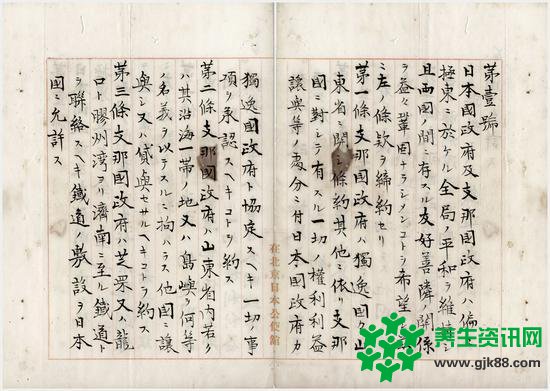 第壹號
日本國政府及支那國政府ハ偏ニ
極東ニ於ケル全局ノ平和ヲ維持シ
且両國ノ間ニ存スル友好善隣ノ関係
ヲ益々鞏固ナラシメンコトヲ希望シ
ニ左ノ條款ヲ締約セリ
第一條支那國政府ハ獨逸國カ山
東省ニ関シ條約其他ニ依リ支那
國ニ對シテ有スル一切ノ權利利益
讓與等ノ處分ニ付日本國政府カ
在北京日本公使館
獨逸國政府ト協定スヘキ一切ノ事
項ヲ承認スヘキコトヲ約ス
第二條支那國政府ハ山東省内若ク
ハ其沿海一帯ノ地又ハ島嶼ヲ何等
ノ名義ヲ以テスルニ拘ハラス他國ニ讓
與シ又ハ貸與セサルヘキコトヲ約ス
第三條支那國政府ハ芝罘又ハ龍
口ト膠州湾ヨリ濟南ニ至ル鐵道ト
ヲ聯絡スヘキ鐵道ノ敷設ヲ日本
國ニ允許ス
养生资讯网
www.gjk88.com